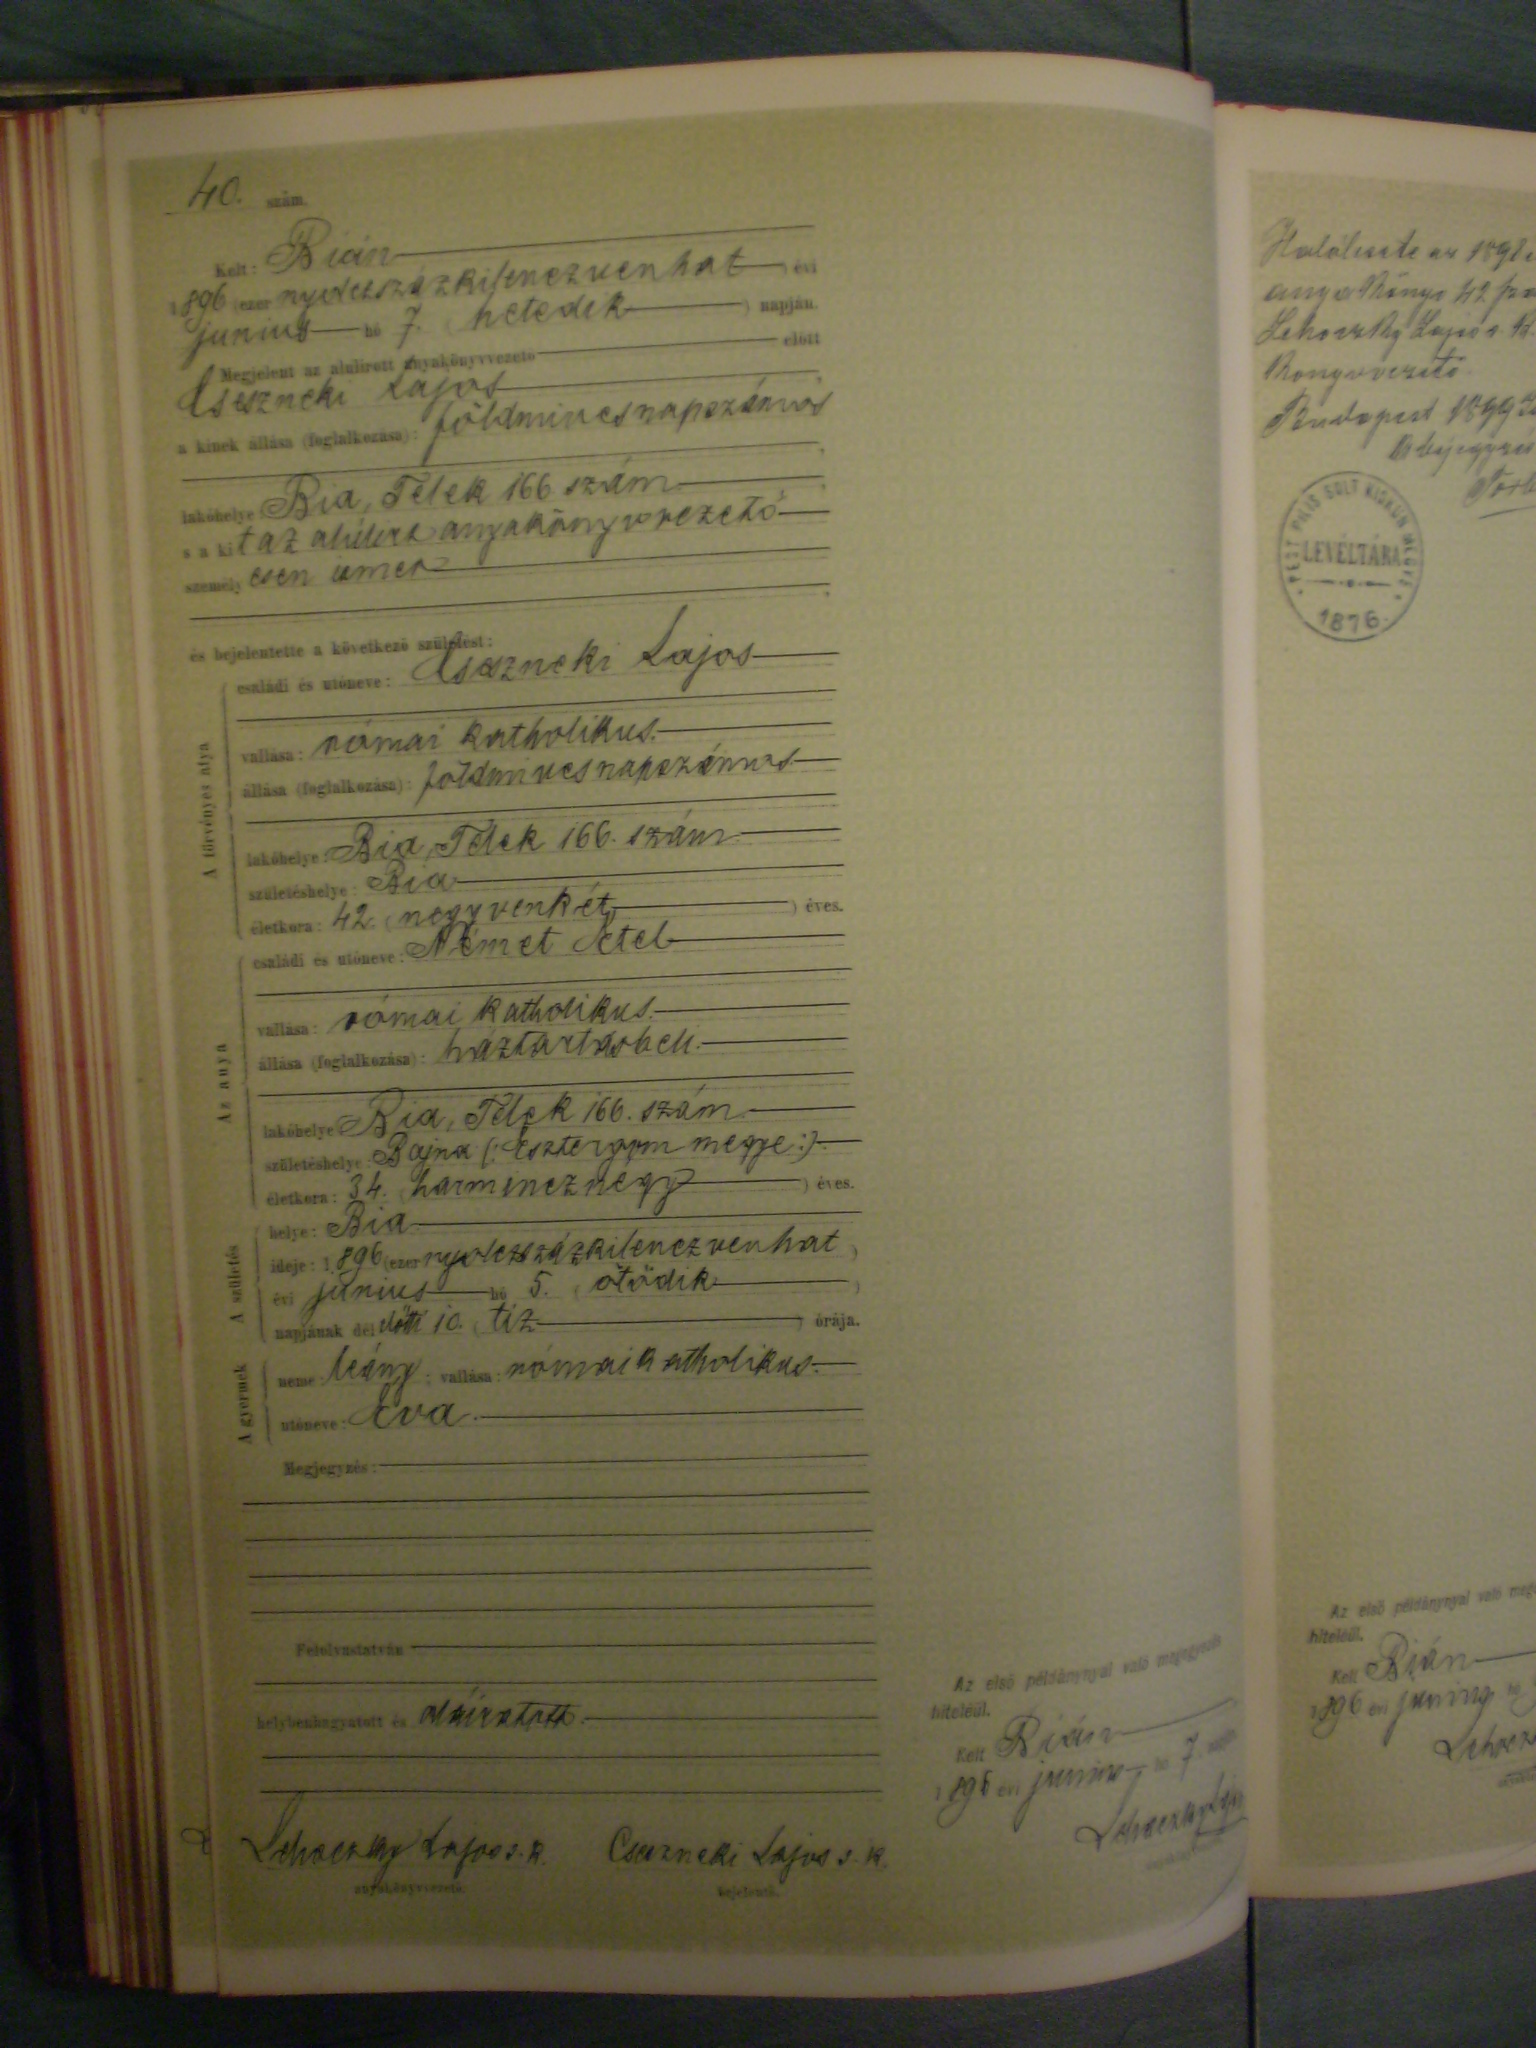 40. szám.
Kelt: Bián
1896 (ezer nyolczszázkilenczvenhat) évi
junius hó 7. (hetedik) napján.
Megjelent az alulirott anyakönyvvezető előtt
Cseszneki Lajos
a kinek állása (foglalkozása): földmivesnapszámos
lakóhelye: Bia, Telek 166 szám
s a kit az alulirt anyakönyvvezető
személyesen ismer
és bejelentette a következő születést:
A törvényes atya
családi és utóneve: Cseszneki Lajos
vallása: római katholikus.
állása (foglalkozása): földmivesnapszámos
lakóhelye: Bia, Telek 166. szám
születéshelye: Bia
életkora: 42. (negyvenkét) éves.
Az anya
családi és utóneve: Német Etel
vallása: római katholikus.
állása (foglalkozása): háztartásbeli.
lakóhelye Bia, Telek 166. szám.
születéshelye: Bajna (: Esztergom megye :)
életkora: 34. (harmincznégy) éves.
A születés
helye: Bia
ideje: 1896 (ezer nyolczszázkilenczvenhat)
évi junius hó 5. (ötödik)
napjának dél előtti 10. (tiz) órája.
A gyermek
neme: leány; vallása: római katholikus.
utóneve: Éva.
Megjegyzés:
Felolvastatván
helybenhagyatott és aláiratott.
Lehoczky Lajos s. k. Cseszneki Lajos s. k.
anyakönyvvezető. bejelentő.
Az első példánynyal való megegyezés
hiteléül.
Kelt Bián
1896 évi junius hó 7. napján
Lehoczky Lajos
1898
anyakönyv 42
Lehoczky Lajos
könyvvezető
Budapest 1899
PEST PILIS SOLT KISKUN MEGYE
LEVÉLTÁRA
1876.
Az első példánynyal való
hiteléül.
Kelt Bián
1896 évi junius hó